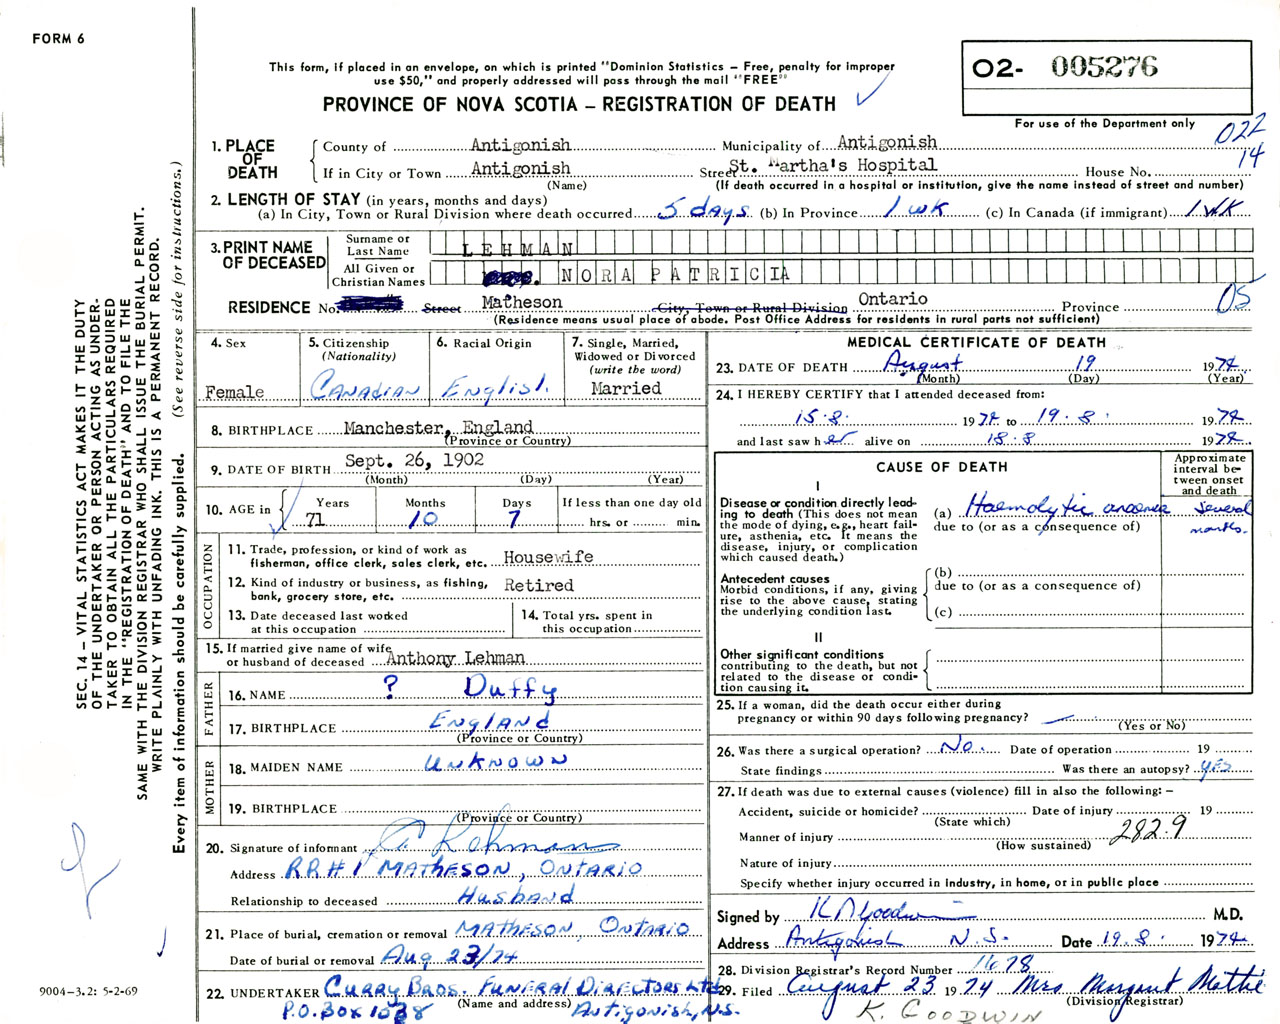 FORM 6
This form, if placed in an envelope, on which is printed "Dominion Statistics – Free, penalty for improper
use $50," and properly addressed will pass through the mail "FREE"
PROVINCE OF NOVA SCOTIA – REGISTRATION OF DEATH
O2- 005276
For use of the Department only
022
14
1. PLACE OF DEATH
County of Antigonish Municipality of Antigonish
If in City or Town Antigonish Street St. Martha's Hospital House No.
(Name) (If death occurred in a hospital or institution, give the name instead of street and number)
2. LENGTH OF STAY (in years, months and days)
(a) In City, Town or Rural Division where death occurred 5 days (b) In Province 1 wk (c) In Canada (if immigrant) 1 WK
3. PRINT NAME OF DECEASED
Surname or Last Name LEHMAN
All Given or Christian Names NORA PATRICIA
RESIDENCE No. Street Matheson City, Town or Rural Division Ontario Province 05
(Residence means usual place of abode. Post Office Address for residents in rural parts not sufficient)
4. Sex
Female
5. Citizenship
(Nationality)
Canadian
6. Racial Origin
English
7. Single, Married,
Widowed or Divorced
(write the word)
Married
8. BIRTHPLACE Manchester, England
(Province or Country)
9. DATE OF BIRTH Sept. 26, 1902
(Month) (Day) (Year)
10. AGE in Years Months Days If less than one day old
71 10 7 hrs. or min.
OCCUPATION
11. Trade, profession, or kind of work as
fisherman, office clerk, sales clerk, etc. Housewife
12. Kind of industry or business, as fishing,
bank, grocery store, etc. Retired
13. Date deceased last worked
at this occupation
14. Total yrs. spent in
this occupation
15. If married give name of wife
or husband of deceased Anthony Lehman
FATHER
16. NAME ? Duffy
17. BIRTHPLACE England
(Province or Country)
MOTHER
18. MAIDEN NAME Unknown
19. BIRTHPLACE
(Province or Country)
20. Signature of informant A Lehman
Address RR#1 MATHESON, ONTARIO
Relationship to deceased Husband
21. Place of burial, cremation or removal MATHESON, ONTARIO
Date of burial or removal Aug 23/74
22. UNDERTAKER Curry Bros. Funeral Directors Ltd
(Name and address)
P.O. Box 1538 Antigonish, N.S.
MEDICAL CERTIFICATE OF DEATH
23. DATE OF DEATH August 19 1974
(Month) (Day) (Year)
24. I HEREBY CERTIFY that I attended deceased from:
15.8. 1974 to 19.8. 1974
and last saw her alive on 18.8 1974
CAUSE OF DEATH
Approximate
interval be-
tween onset
and death
I
Disease or condition directly lead-
ing to death (This does not mean
the mode of dying, e.g., heart fail-
ure, asthenia, etc. It means the
disease, injury, or complication
which caused death.)
(a) Haemolytic anaemia several
due to (or as a consequence of) months.
Antecedent causes
Morbid conditions, if any, giving
rise to the above cause, stating
the underlying condition last.
(b)
due to (or as a consequence of)
(c)
II
Other significant conditions
contributing to the death, but not
related to the disease or condi-
tion causing it.
25. If a woman, did the death occur either during
pregnancy or within 90 days following pregnancy?
(Yes or No)
26. Was there a surgical operation? No. Date of operation 19
State findings Was there an autopsy? yes
27. If death was due to external causes (violence) fill in also the following: –
Accident, suicide or homicide? Date of injury 19
(State which)
Manner of injury 282.9
(How sustained)
Nature of injury
Specify whether injury occurred in industry, in home, or in public place
Signed by K A Goodwin M.D.
Address Antigonish N.S. Date 19.8. 1974
28. Division Registrar's Record Number 1678
29. Filed August 23 1974 Mrs Margaret Mattie
(Division Registrar)
K. GOODWIN
SEC. 14 – VITAL STATISTICS ACT MAKES IT THE DUTY
OF THE UNDERTAKER OR PERSON ACTING AS UNDER-
TAKER TO OBTAIN ALL THE PARTICULARS REQUIRED
IN THE "REGISTRATION OF DEATH" AND TO FILE THE
SAME WITH THE DIVISION REGISTRAR WHO SHALL ISSUE THE BURIAL PERMIT.
WRITE PLAINLY WITH UNFADING INK. THIS IS A PERMANENT RECORD.
Every item of information should be carefully supplied. (See reverse side for instructions.)
9004-3.2: 5-2-69